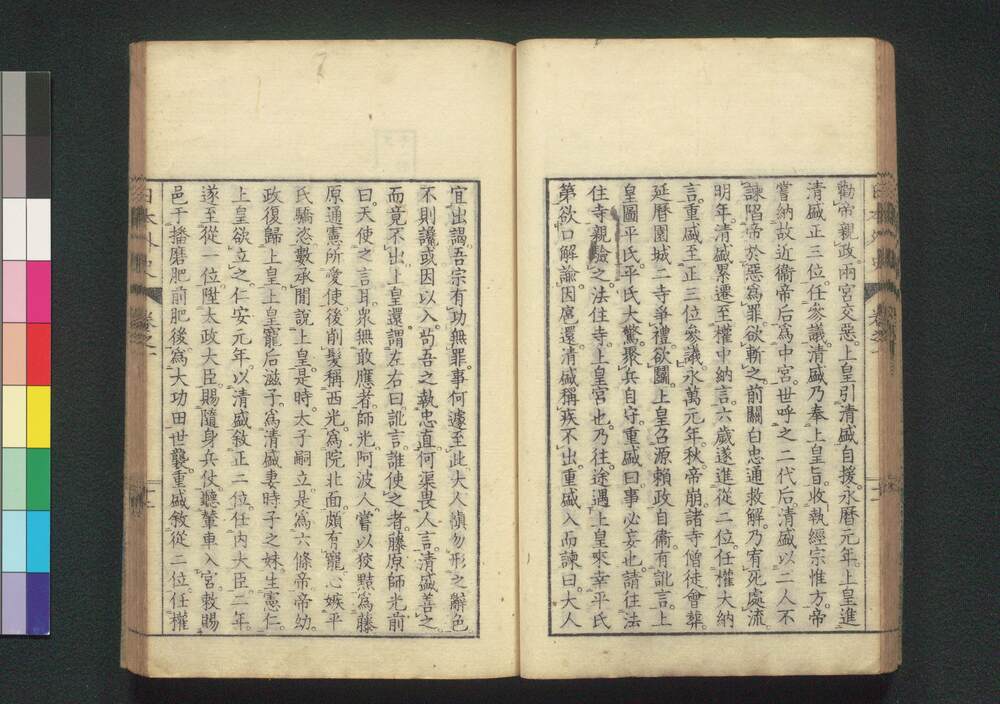 勸帝親政兩宮交惡上皇引清盛自援永曆元年上皇進
清盛正三位任參議清盛乃奉上皇旨收執經宗惟方帝
嘗納故近衞帝后爲中宮世呼之二代后清盛以二人不
諫陷帝於惡爲罪欲斬之前關白忠通救解乃宥死處流
明年清盛累遷至權中納言六歲遂進從二位任權大納
言重盛至正三位參議永萬元年秋帝崩諸寺僧徒會葬
延曆園城二寺爭禮欲鬭上皇召源賴政自衞有訛言上
皇圖平氏平氏大驚聚兵自守重盛曰事必妄也請往法
住寺親驗之法住寺上皇宮也乃往途遇上皇來幸平氏
第欲口解諭因扈還清盛稱疾不出重盛入而諫曰大人
宜出謁吾宗有功無罪事何遽至此大人愼勿形之辭色
不則讒或因以入苟吾之執忠直何渠畏人言清盛善之
而竟不出上皇還謂左右曰訛言誰使之者藤原師光前
曰天使之言耳衆無敢應者師光阿波人嘗以狡黠爲藤
原通憲所愛使後削髮稱西光爲院北面頗有寵心嫉平
氏驕恣數承間說上皇是時太子嗣立是爲六條帝帝幼
政復歸上皇上皇寵后滋子爲清盛妻時子之妹生憲仁
上皇欲立之仁安元年以清盛敍正二位任內大臣二年
遂至從一位陞太政大臣賜隨身兵仗聽輦車入宮敕賜
邑于播磨肥前肥後爲大功田世襲重盛敍從二位任權